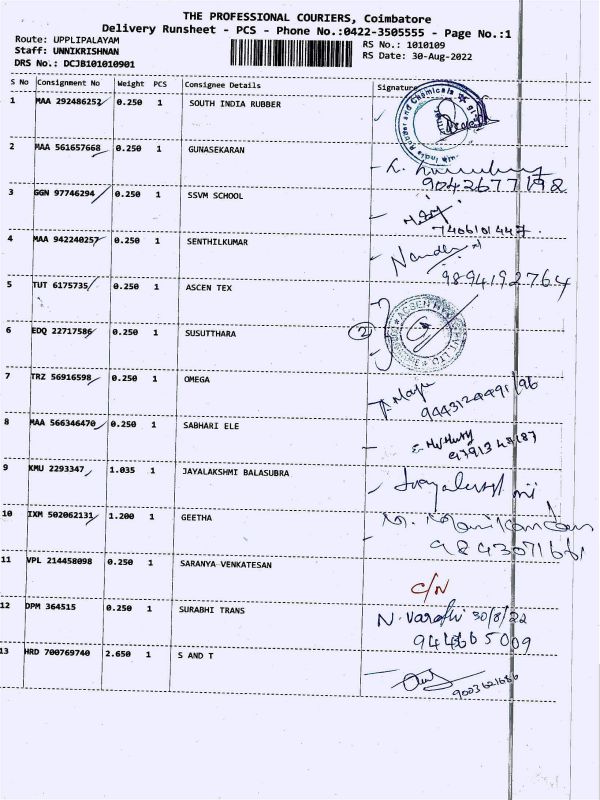 THE PROFESSIONAL COURIERS, Coimbatore
Delivery Runsheet - PCS - Phone No.:0422-3505555 - Page No.:1
Route: UPPLIPALAYAM
RS No.: 1010109
Staff: UNNIKRISHNAN
RS Date: 30-Aug-2022
DRS No.: DCJB101010901
S No Consignment No Weight PCS Consignee Details Signature
1 MAA 292486252 0.250 1 SOUTH INDIA RUBBER
2 MAA 561657668 0.250 1 GUNASEKARAN
9042677198
3 GGN 97746294 0.250 1 SSVM SCHOOL
7406101447
4 MAA 942240257 0.250 1 SENTHILKUMAR
9894192764
5 TUT 6175735 0.250 1 ASCEN TEX
6 EDQ 22717586 0.250 1 SUSUTTHARA
2
7 TRZ 56916598 0.250 1 OMEGA
8 MAA 566346470 0.250 1 SABHARI ELE
9 KMU 2293347 1.035 1 JAYALAKSHMI BALASUBRA
10 IXM 502062131 1.200 1 GEETHA
M. Manikandan
9843071661
11 VPL 214458098 0.250 1 SARANYA VENKATESAN
C/N
12 DPM 364515 0.250 1 SURABHI TRANS
N. Varathi 30/8/22
13 HRD 700769740 2.650 1 S AND T
9003621686